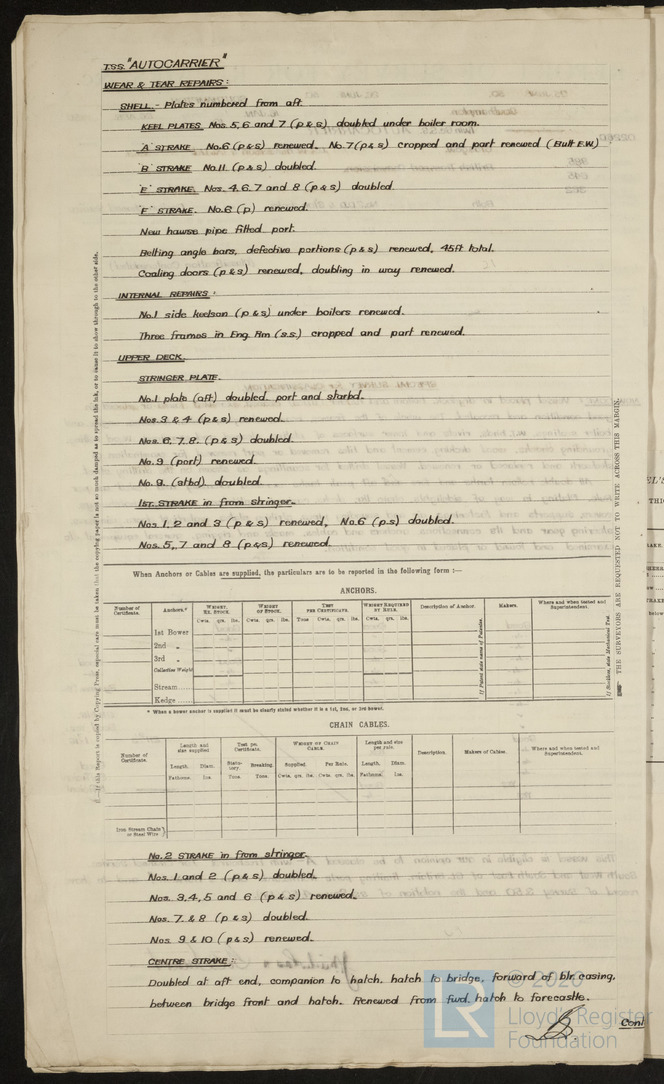 T.S.S. "AUTOCARRIER"
WEAR & TEAR REPAIRS:
SHELL.- Plates numbered from aft.
KEEL PLATES Nos. 5, 6 and 7 (p & s) doubled under boiler room.
'A' STRAKE No.6 (p & s) renewed. No.7 (p & s) cropped and part renewed (Butt E.W.)
'B' STRAKE No.11 (p & s) doubled.
'E' STRAKE. Nos. 4, 6, 7 and 8 (p & s) doubled.
'F' STRAKE. No.6 (p) renewed.
New hawse pipe fitted port.
Belting angle bars, defective portions (p & s) renewed, 45ft total.
Coaling doors (p & s) renewed, doubling in way renewed.
INTERNAL REPAIRS:
No.1 side keelson (p & s) under boilers renewed.
Three frames in Eng. Rm (s.s.) cropped and part renewed.
UPPER DECK.
STRINGER PLATE.
No.1 plate (aft) doubled port and starbd.
Nos. 3 & 4 (p & s) renewed.
Nos. 6, 7, 8, (p & s) doubled.
No. 9 (port) renewed.
No. 9. (stbd) doubled.
1ST. STRAKE in from stringer.
Nos. 1, 2 and 3 (p & s) renewed, No.6 (p.s) doubled.
Nos. 5, 7 and 8 (p & s) renewed
When Anchors or Cables are supplied, the particulars are to be reported in the following form :—
ANCHORS.
Number of Certificate. Anchors.* WEIGHT, EX. STOCK. WEIGHT OF STOCK. TEST PER CERTIFICATE. WEIGHT REQUIRED BY RULE. Description of Anchor. Makers. Where and when tested and Superintendent.
Cwts. qrs. lbs. Cwts. qrs. lbs. Tons Cwts. qrs. lbs. Cwts. qrs. lbs.
1st Bower
2nd „
3rd „
Collective Weight
Stream
Kedge
If Patent state name of Patentee.
* When a bower anchor is supplied it must be clearly stated whether it is a 1st, 2nd, or 3rd bower.
CHAIN CABLES.
Number of Certificate. Length and size supplied Test per Certificate. WEIGHT OF CHAIN CABLE. Length and size per rule. Description. Makers of Cables. Where and when tested and Superintendent.
Length. Diam. Statutory. Breaking. Supplied. Per Rule. Length. Diam.
Fathoms. Ins. Tons. Tons. Cwts. qrs. lbs. Cwts. qrs. lbs. Fathoms. Ins.
Iron Stream Chain or Steel Wire
No. 2 STRAKE in from stringer.
Nos. 1 and 2 (p & s) doubled.
Nos. 3, 4, 5 and 6 (p & s) renewed.
Nos. 7. & 8 (p & s) doubled.
Nos 9 & 10 (p & s) renewed.
CENTRE STRAKE:
Doubled at aft end, companion to hatch, hatch to bridge, forward of blr. casing,
between bridge front and hatch. Renewed from fwd. hatch to forecastle.
Cont
THE SURVEYORS ARE REQUESTED NOT TO WRITE ACROSS THIS MARGIN.
LR
Lloyd's Register
Foundation